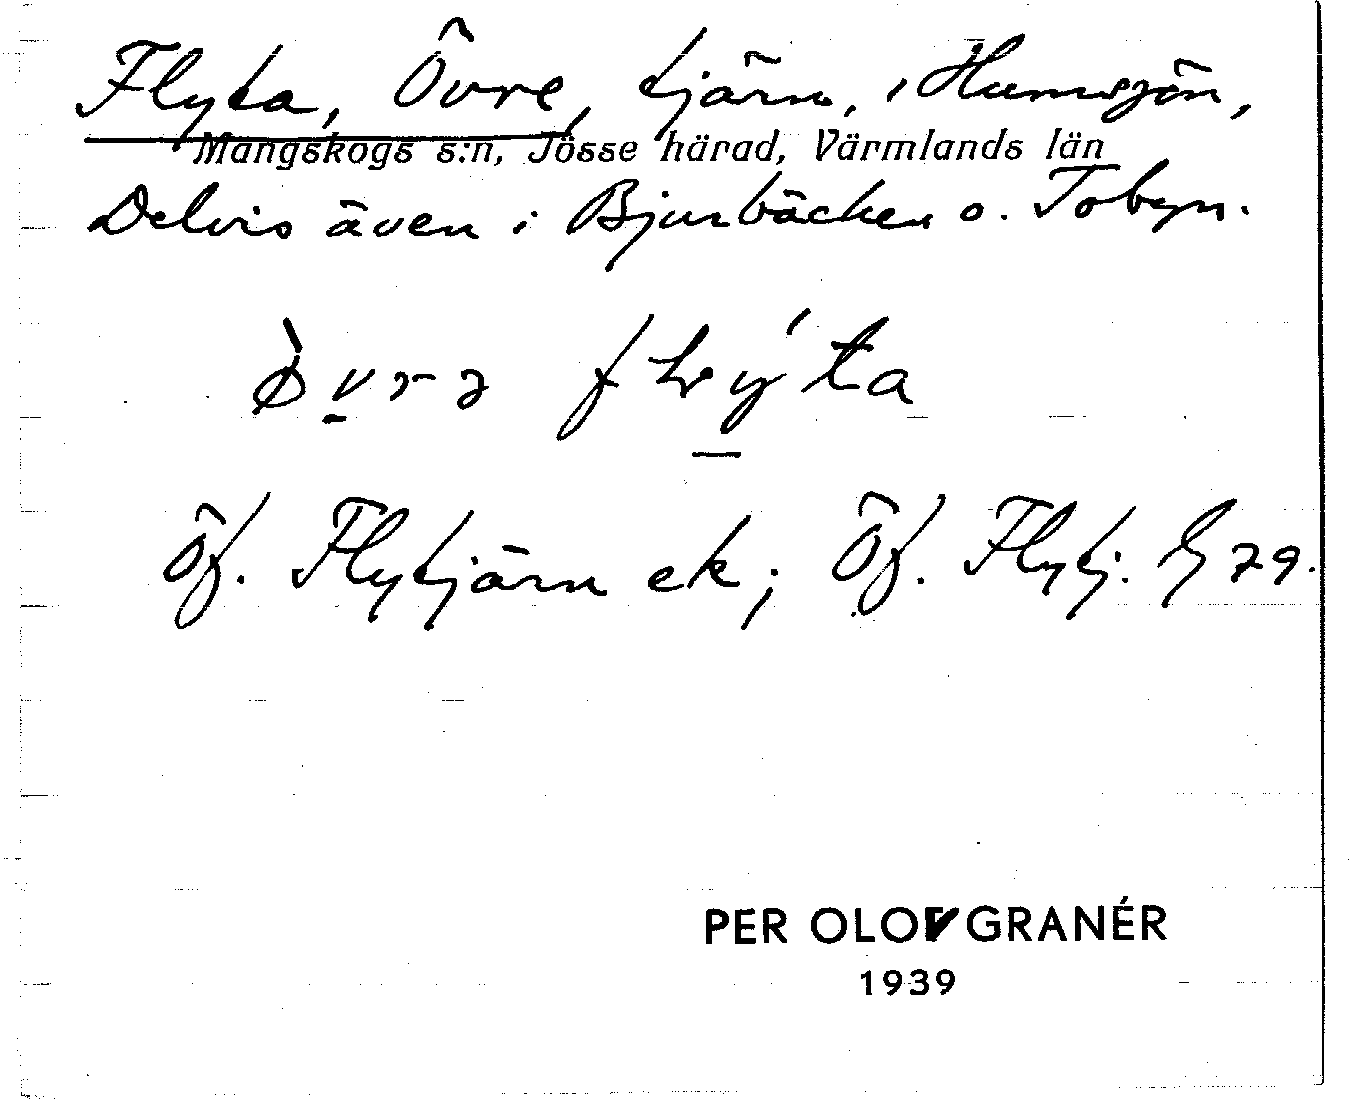 Flyta, Övre, tjärn, i Humsjön,
Mangskogs s:n, Jösse härad, Värmlands län
Delvis även i Bjurbäcken o. Tobyn.
Öf. Flytjärn ek; Öf. Flytj. G 79.
PER OLOV GRANÉR
1939